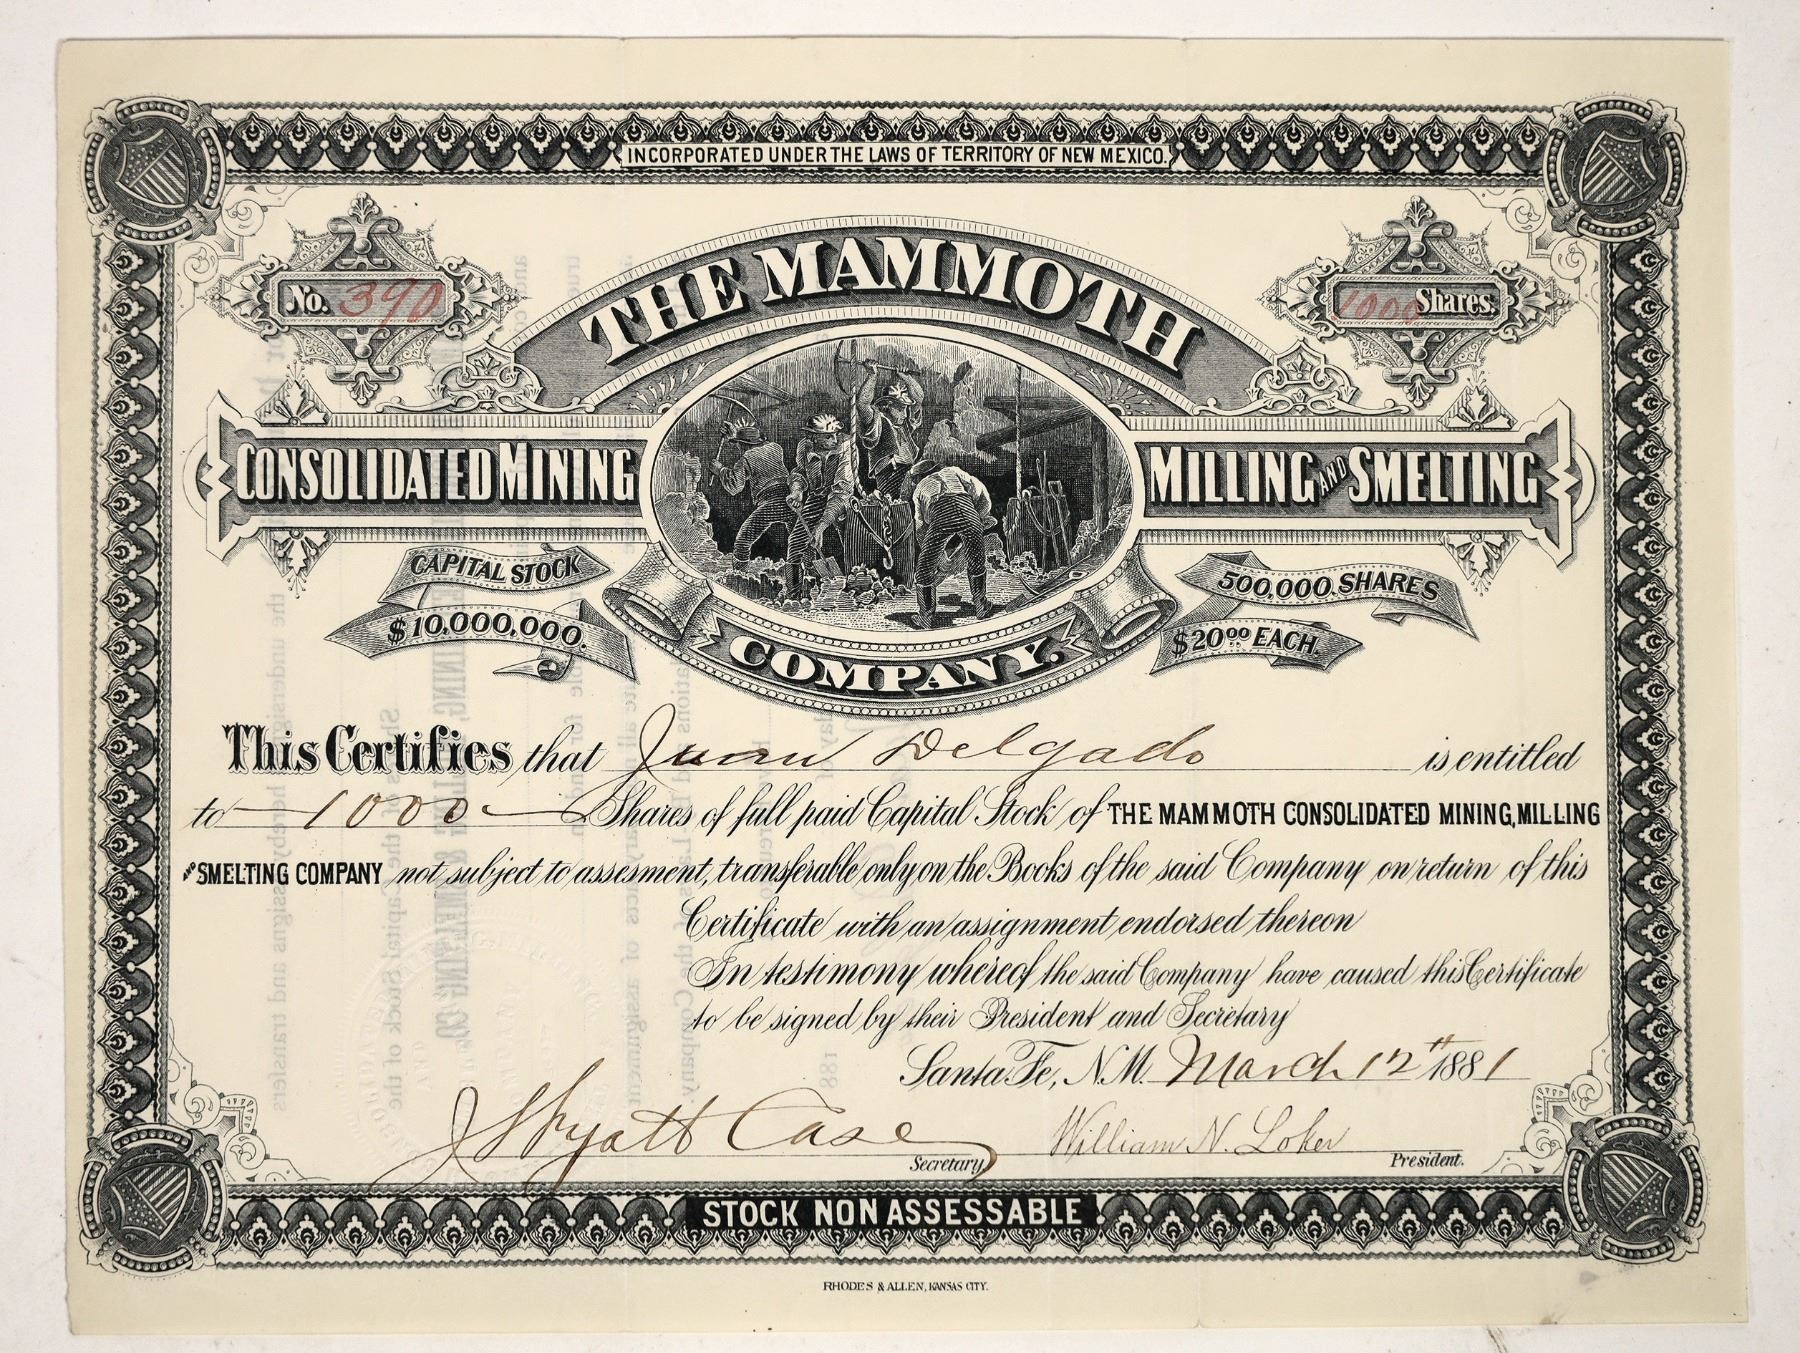 INCORPORATED UNDER THE LAWS OF TERRITORY OF NEW MEXICO.
No. 390
1000 Shares.
THE MAMMOTH
CONSOLIDATED MINING
MILLING AND SMELTING
COMPANY.
CAPITAL STOCK
$10,000,000.
500,000 SHARES
$20.00 EACH.
This Certifies that Juan Delgado is entitled
to 1000 Shares of full paid Capital Stock of THE MAMMOTH CONSOLIDATED MINING, MILLING
AND SMELTING COMPANY not subject to assesment, transferable only on the Books of the said Company on return of this
Certificate with an assignment endorsed thereon
In testimony whereof the said Company have caused this Certificate
to be signed by their President and Secretary
Santa Fe, N.M. March 12th 1881
Wyatt Case Secretary
William N. Loker President.
STOCK NON ASSESSABLE
RHODES & ALLEN, KANSAS CITY.